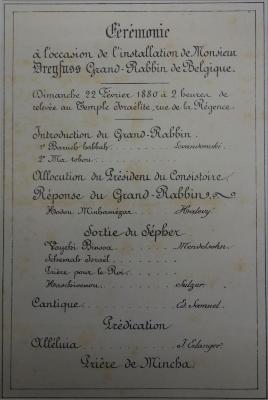 Cérémonie
à l'occasion de l'installation de Monsieur
Dreyfuss Grand-Rabbin de Belgique.
Dimanche 22 Février 1880 à 2 heures de
relevée au Temple Israélite, rue de la Régence.
Introduction du Grand-Rabbin.
1° Baruch habbah Lewandowski.
2° Ma tobou
Allocution du Président du Consistoire.
Réponse du Grand-Rabbin.
Hodou Halevy.
Sortie du Sépher
Vayehi Binsoa Mendelsohn.
Schemah Israël
Prière pour le Roi
Haschivenou Sulzer.
Cantique Ed. Samuel.
Prédication
Alléluia J. Erlanger.
Prière de Mincha